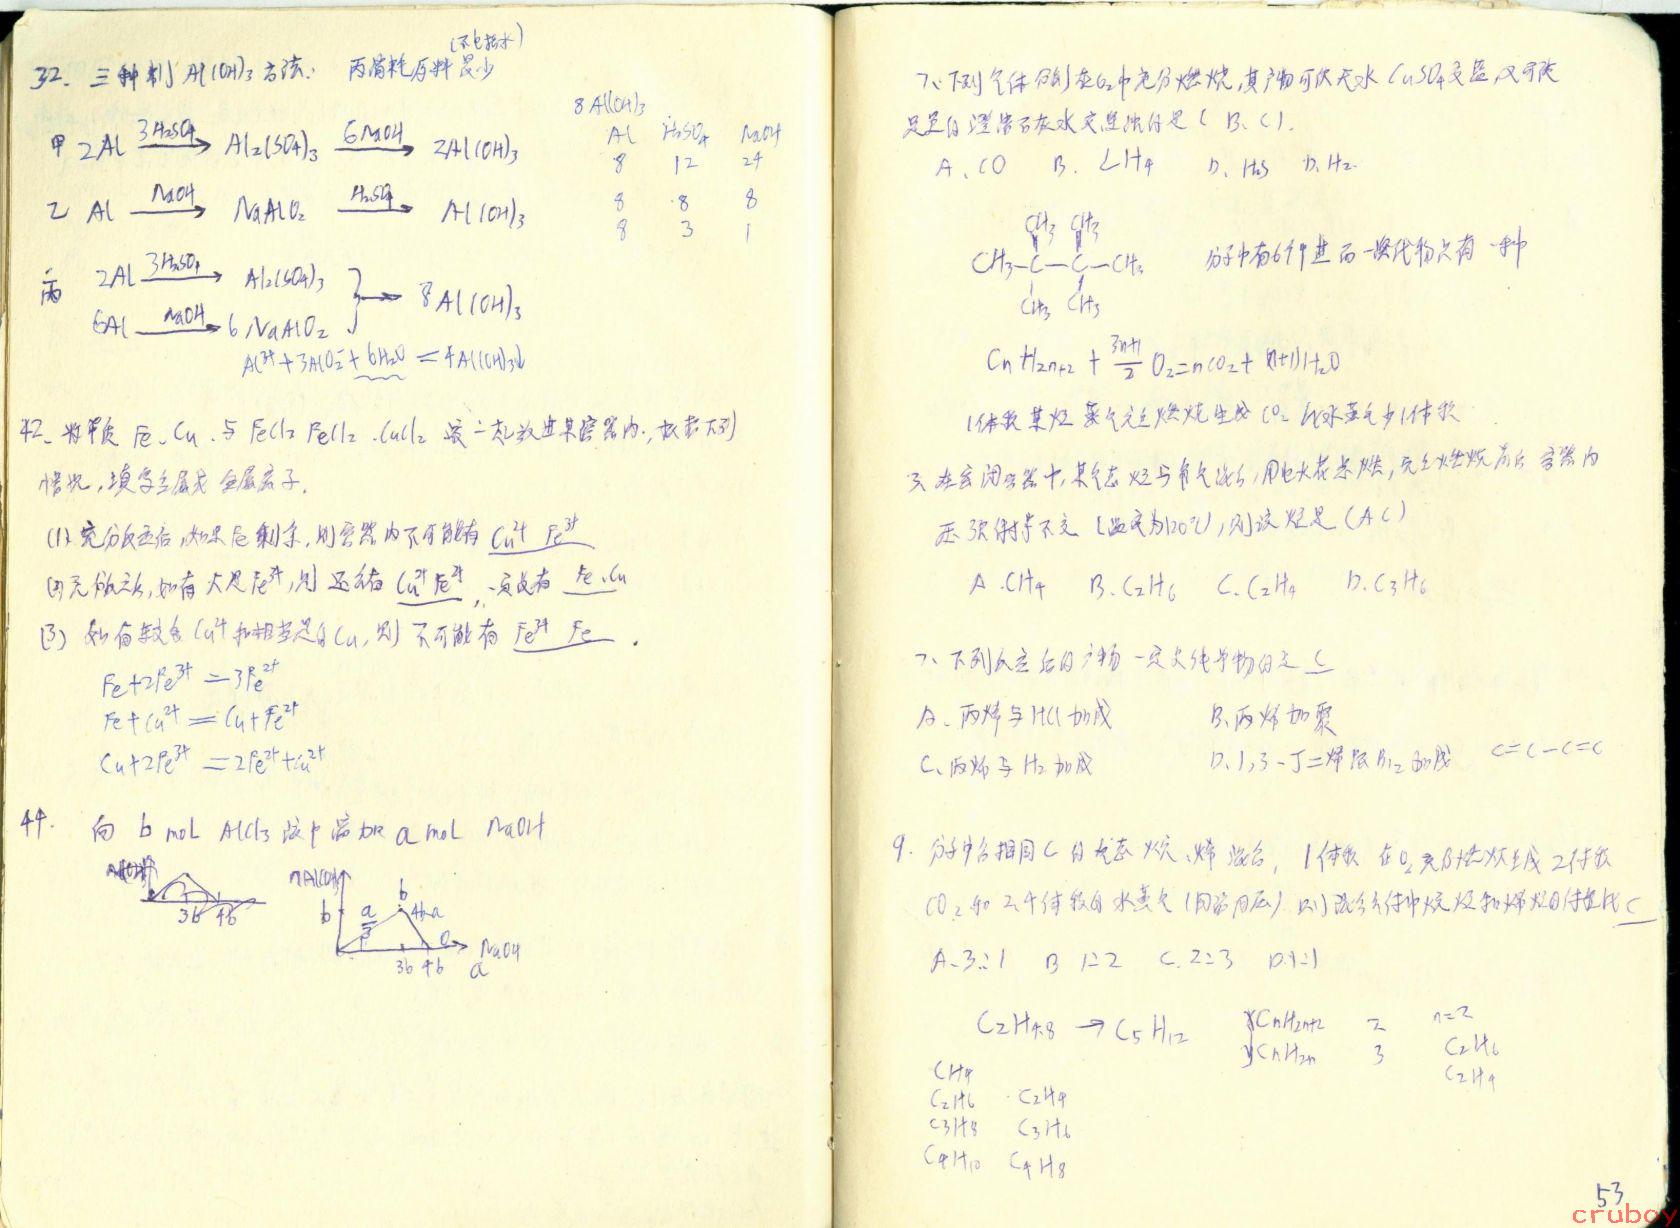 (不包括水)
32. 三种制Al(OH)₃方法: 丙消耗原料最少
8Al(OH)₃
Al H₂SO₄ NaOH
甲 2Al 3H₂SO₄→ Al₂(SO₄)₃ 6NaOH→ 2Al(OH)₃ 8 12 24
乙 Al NaOH→ NaAlO₂ H₂SO₄→ Al(OH)₃ 8 8 8
8 3 1
丙 2Al 3H₂SO₄→ Al₂(SO₄)₃ } → 8Al(OH)₃
6Al NaOH→ 6NaAlO₂
Al³⁺+3AlO₂⁻+6H₂O=4Al(OH)₃↓
42. 将单质 Fe、Cu、与 FeCl₂ FeCl₂、CuCl₂ 液一起放进某容器内,根据下列
情况,填写金属或金属离子.
(1) 充分反应后,如果Fe剩余,则容器内不可能有 Cu²⁺ Fe³⁺
如有大量Fe³⁺,则还有 Cu²⁺ Fe²⁺,一定没有 Fe、Cu
(3) 如有较多Cu²⁺和相当量的Cu,则不可能有 Fe³⁺ Fe.
Fe+2Fe³⁺=3Fe²⁺
Fe+Cu²⁺=Cu+Fe²⁺
Cu+2Fe³⁺=2Fe²⁺+Cu²⁺
44. 向 b mol AlCl₃ 液中滴加 a mol NaOH
3b 4b
nAl(OH)₃
b a/3 b 4b-a 0
3b 4b NaOH
a
7、下列气体分别在O₂中充分燃烧,其产物可使无水CuSO₄变蓝,又可使
足量的澄清石灰水变浑浊的是( B、C ).
A、CO B、CH₄ D、H₂S D、H₂
CH₃ CH₃
CH₃-C-C-CH₃ 分子中有6个甲基而一溴代物只有一种
CH₃ CH₃
CnH2n+2 + 3n+1/2 O₂=nCO₂+(n+1)H₂O
1体积某烃蒸气完全燃烧生成CO₂比水蒸气少1体积
3、在密闭容器中,某气态烃与氧气混合,用电火花点燃,完全燃烧前后容器内
压强保持不变(温度为120℃),则该烃是(A C)
A.CH₄ B.C₂H₆ C.C₂H₄ D.C₃H₆
7、下列反应后的产物一定为纯净物的是 C
A、丙烯与HCl加成 B、丙烯加聚
C、丙烯与H₂加成 D、1,3-丁二烯跟Br₂加成 C=C-C=C
9. 分子中含相同C的气态烷、烯混合,1体积在O₂充分燃烧生成2体积
CO₂和2.4体积的水蒸气(同温同压)则混合气体中烷烃和烯烃的体积比 C
A.3:1 B 1:2 C.2:3 D.1:1
C₂H₄.₈ → C₅H₁₂ xCnH2n+2 2 n=2
yCnH2n 3 C₂H₆
C₂H₄
CH₄
C₂H₆ C₂H₄
C₃H₈ C₃H₆
C₄H₁₀ C₄H₈
53
cruboy